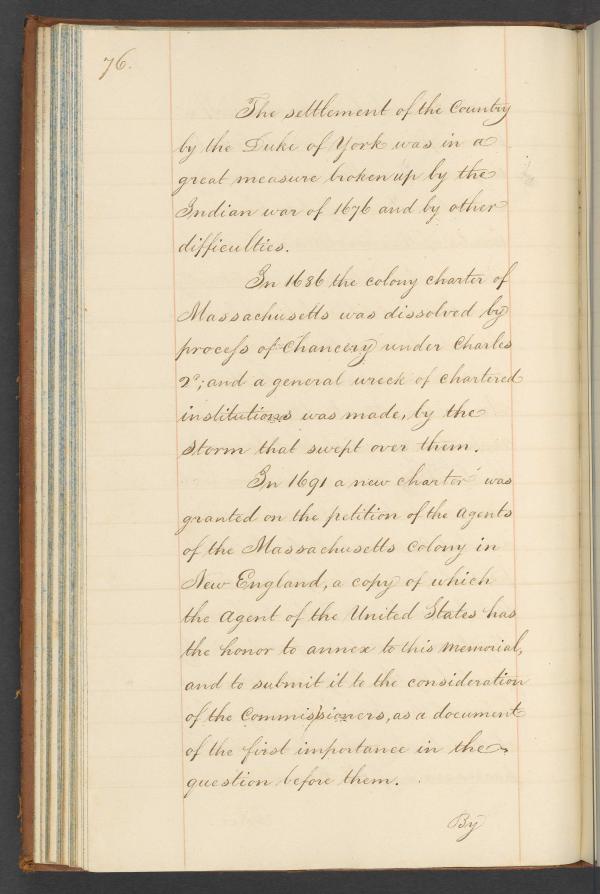 76.
The settlement of the Country
by the Duke of York was in a
great measure broken up by the
Indian war of 1676 and by other
difficulties.
In 1686 the colony charter of
Massachusetts was dissolved by
process of Chancery under Charles
2d; and a general wreck of chartered
institutions was made, by the
storm that swept over them.
In 1691 a new charter was
granted on the petition of the agents
of the Massachusetts Colony in
New England, a copy of which
the agent of the United States has
the honor to annex to this memorial,
and to submit it to the consideration
of the Commissioners, as a document
of the first importance in the
question before them.
By